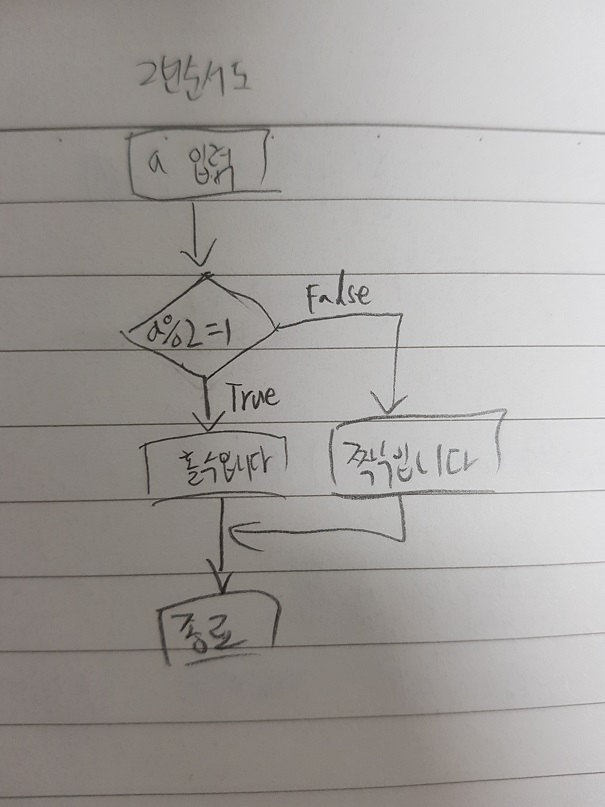 2번순서도
a 입력
a%2=1
False
True
홀수입니다
짝수입니다
종료